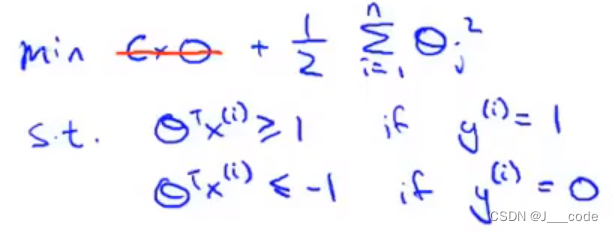 min C×0 + 1/2 n∑i=1 θj²
s.t. θᵀx⁽ⁱ⁾ ≥ 1 if y⁽ⁱ⁾ = 1
θᵀx⁽ⁱ⁾ ≤ -1 if y⁽ⁱ⁾ = 0
CSDN @J___code